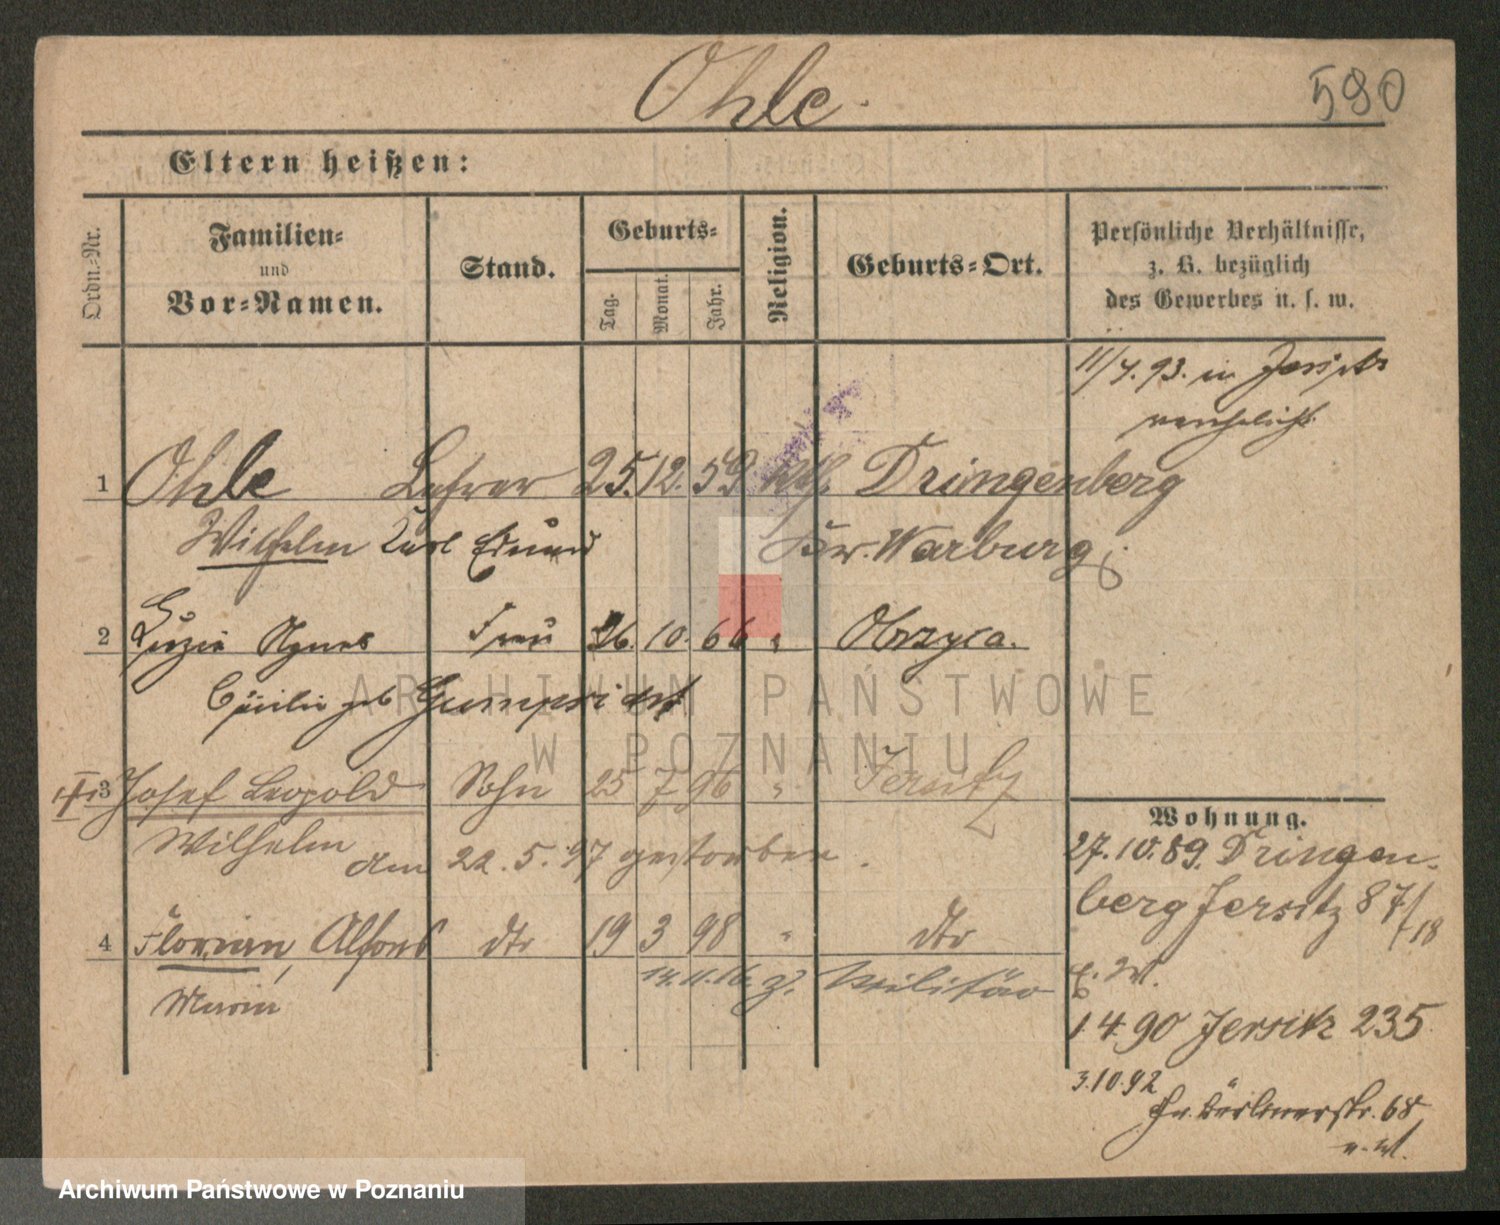 Ohle.
580
Eltern heißen:
Ordn.-Nr.
Familien-
und
Vor-Namen.
Stand.
Geburts-
Tag.
Monat.
Jahr.
Religion.
Geburts-Ort.
Persönliche Verhältnisse,
z. B. bezüglich
des Gewerbes u. s. w.
11/4. 93. in Jersitz
verehelicht
1 Ohle Lehrer 25. 12. 59 kth. Dringenberg
Wilhelm Karl Eduard Kr. Warburg
2 Luzie Agnes Frau 26. 10. 66 " Obrzyca.
Cäcilie geb
3 Josef Leopold Sohn 25 7 96 " Jersitz
Wilhelm am 22. 5. 97 gestorben.
4 Florian, Alfons dto 19 3 98 " dto
Maria
14. 11. 16. z. Militär
Wohnung.
27. 10. 89. Dringen-
berg Jersitz 87/18
1 4. 90 Jersitz 235
3. 10. 92
68
ARCHIWUM PAŃSTWOWE
W POZNANIU
Archiwum Państwowe w Poznaniu